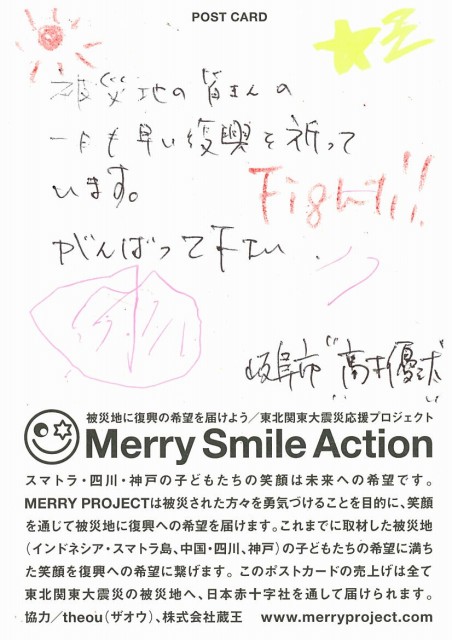 POST CARD
被災地の皆さんの
一日も早い復興を祈って
います。
Fight!!
がんばって下さい
岐阜市 高井優
被災地に復興の希望を届けよう／東北関東大震災応援プロジェクト
Merry Smile Action
スマトラ・四川・神戸の子どもたちの笑顔は未来への希望です。
MERRY PROJECTは被災された方々を勇気づけることを目的に、笑顔
を通じて被災地に復興への希望を届けます。これまでに取材した被災地
（インドネシア・スマトラ島、中国・四川、神戸）の子どもたちの希望に満ち
た笑顔を復興への希望に繋げます。このポストカードの売上げは全て
東北関東大震災の被災地へ、日本赤十字社を通して届けられます。
協力／theou（ザオウ）、株式会社蔵王 www.merryproject.com